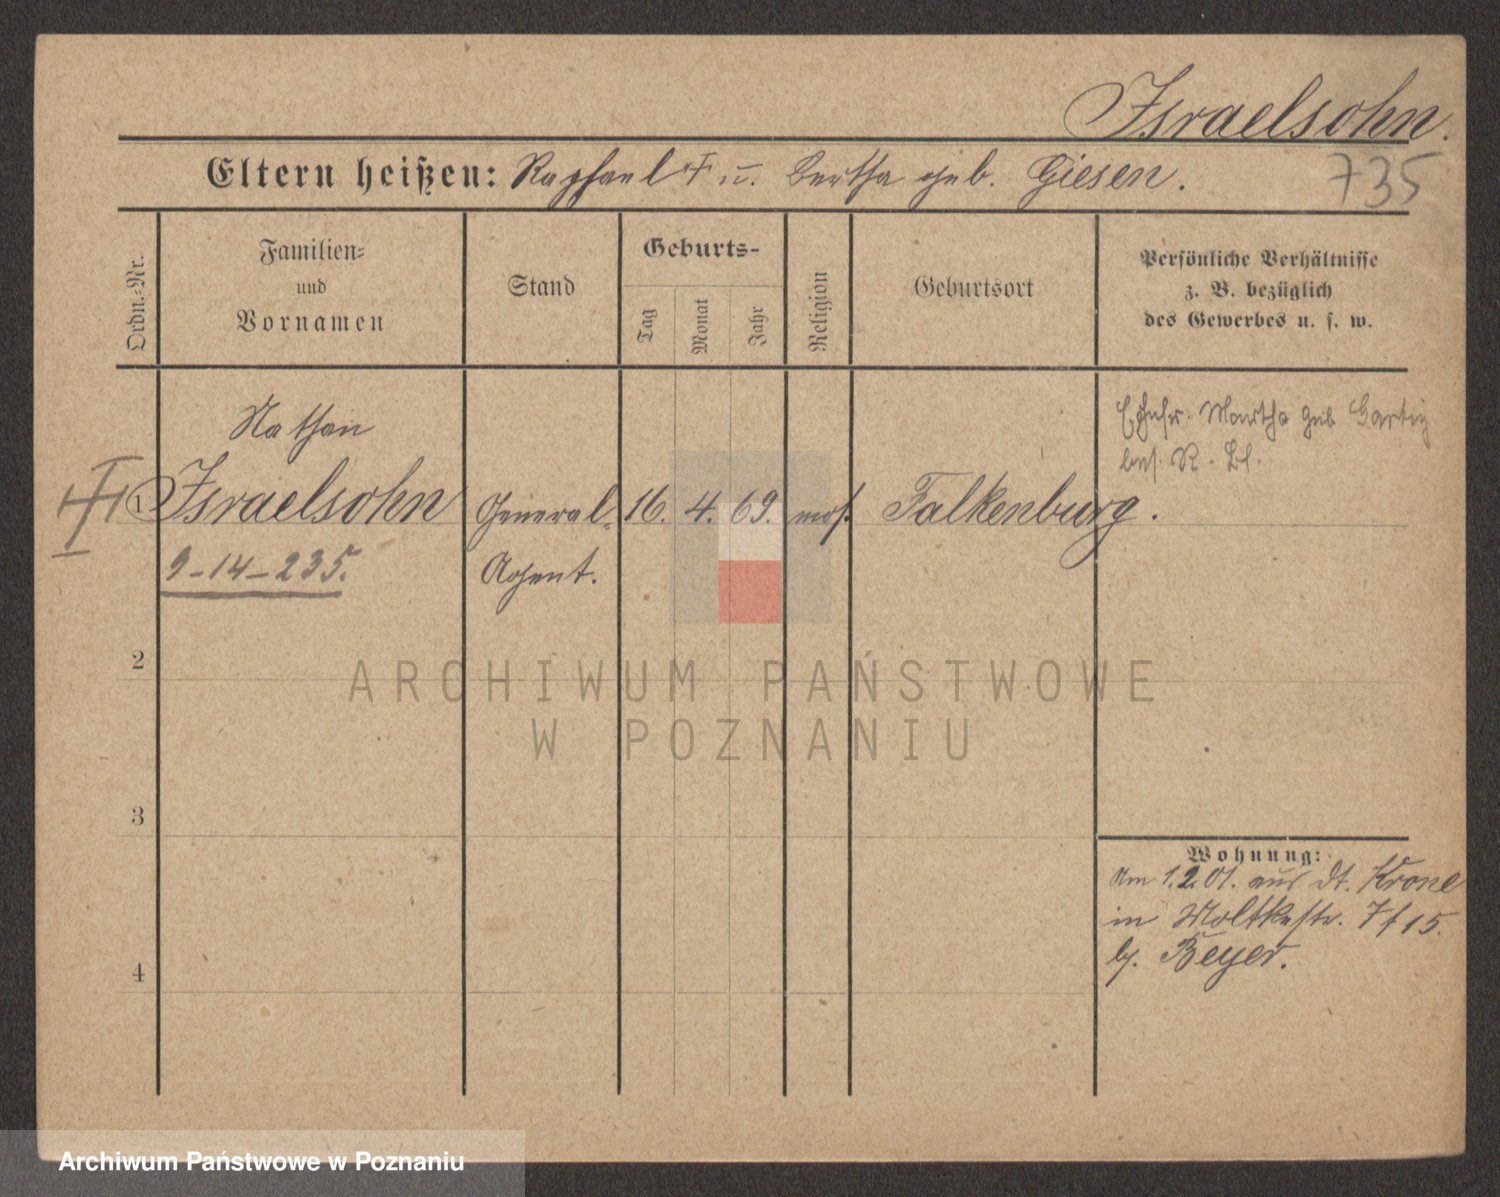 Israelsohn.
Eltern heißen: Raphael † u. Bertha geb. Giesen.
735
Ordn.-Nr.
Familien-
und
Vornamen
Stand
Geburts-
Tag
Monat
Jahr
Religion
Geburtsort
Persönliche Verhältnisse
z. B. bezüglich
des Gewerbes u. s. w.
Nathan
1 Israelsohn
General-
Agent.
16. 4. 69. mos. Falkenburg.
9-14-235.
Ehefr. Martha geb
bes. R. Bl.
2
3
4
ARCHIWUM PAŃSTWOWE
W POZNANIU
Wohnung:
Am 1.2.01. aus Dt. Krone
in Moltkestr. 7 15.
b. Beyer.
Archiwum Państwowe w Poznaniu